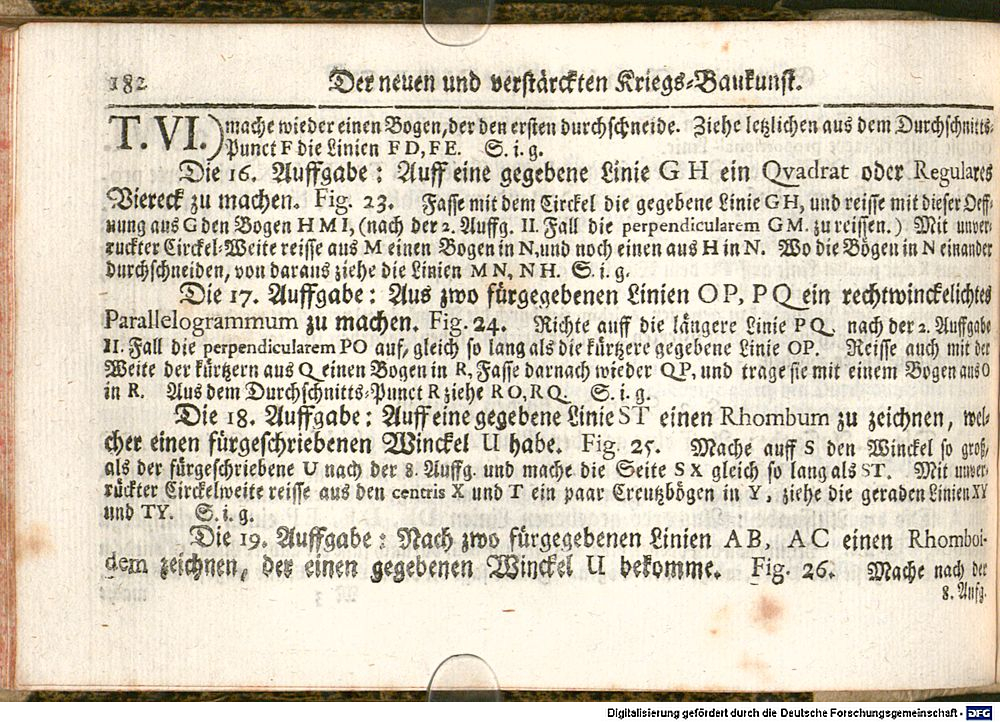 182 Der neuen und verstärckten Kriegs-Baukunst.
T. VI.) mache wieder einen Bogen, der den ersten durchschneide. Ziehe letzlichen aus dem Durchschnitts-
Punct F die Linien F D, F E. S. i. g.
Die 16. Auffgabe: Auff eine gegebene Linie G H ein Qvadrat oder Regulares
Viereck zu machen. Fig. 23. Fasse mit dem Circkel die gegebene Linie G H, und reisse mit dieser Oeff-
nung aus G den Bogen H M I, (nach der 2. Auffg. II. Fall die perpendicularem G M. zu reissen.) Mit unver-
ruckter Circkel-Weite reisse aus M einen Bogen in N, und noch einen aus H in N. Wo die Bögen in N einander
durchschneiden, von daraus ziehe die Linien M N, N H. S. i. g.
Die 17. Auffgabe: Aus zwo fürgegebenen Linien O P, P Q ein rechtwinckelichtes
Parallelogrammum zu machen. Fig. 24. Richte auff die längere Linie P Q nach der 2. Auffgabe
II. Fall die perpendicularem PO auf, gleich so lang als die kürtzere gegebene Linie OP. Reisse auch mit der
Weite der kürtzern aus Q einen Bogen in R, Fasse darnach wieder QP, und trage sie mit einem Bogen aus O
in R. Aus dem Durchschnitts-Punct R ziehe R O, R Q. S. i. g.
Die 18. Auffgabe: Auff eine gegebene Linie S T einen Rhombum zu zeichnen, wel-
cher einen fürgeschriebenen Winckel U habe. Fig. 25. Mache auff S den Winckel so groß,
als der fürgeschriebene U nach der 8. Auffg. und mache die Seite S X gleich so lang als ST. Mit unver-
rückter Circkelweite reisse aus den centris X und T ein paar Creutzbögen in Y, ziehe die geraden Linien XY
und TY. S. i. g.
Die 19. Auffgabe: Nach zwo fürgegebenen Linien A B, A C einen Rhomboi-
dem zeichnen, der einen gegebenen Winckel U bekomme. Fig. 26. Mache nach der
8. Aufg.
Digitalisierung gefördert durch die Deutsche Forschungsgemeinschaft - DFG